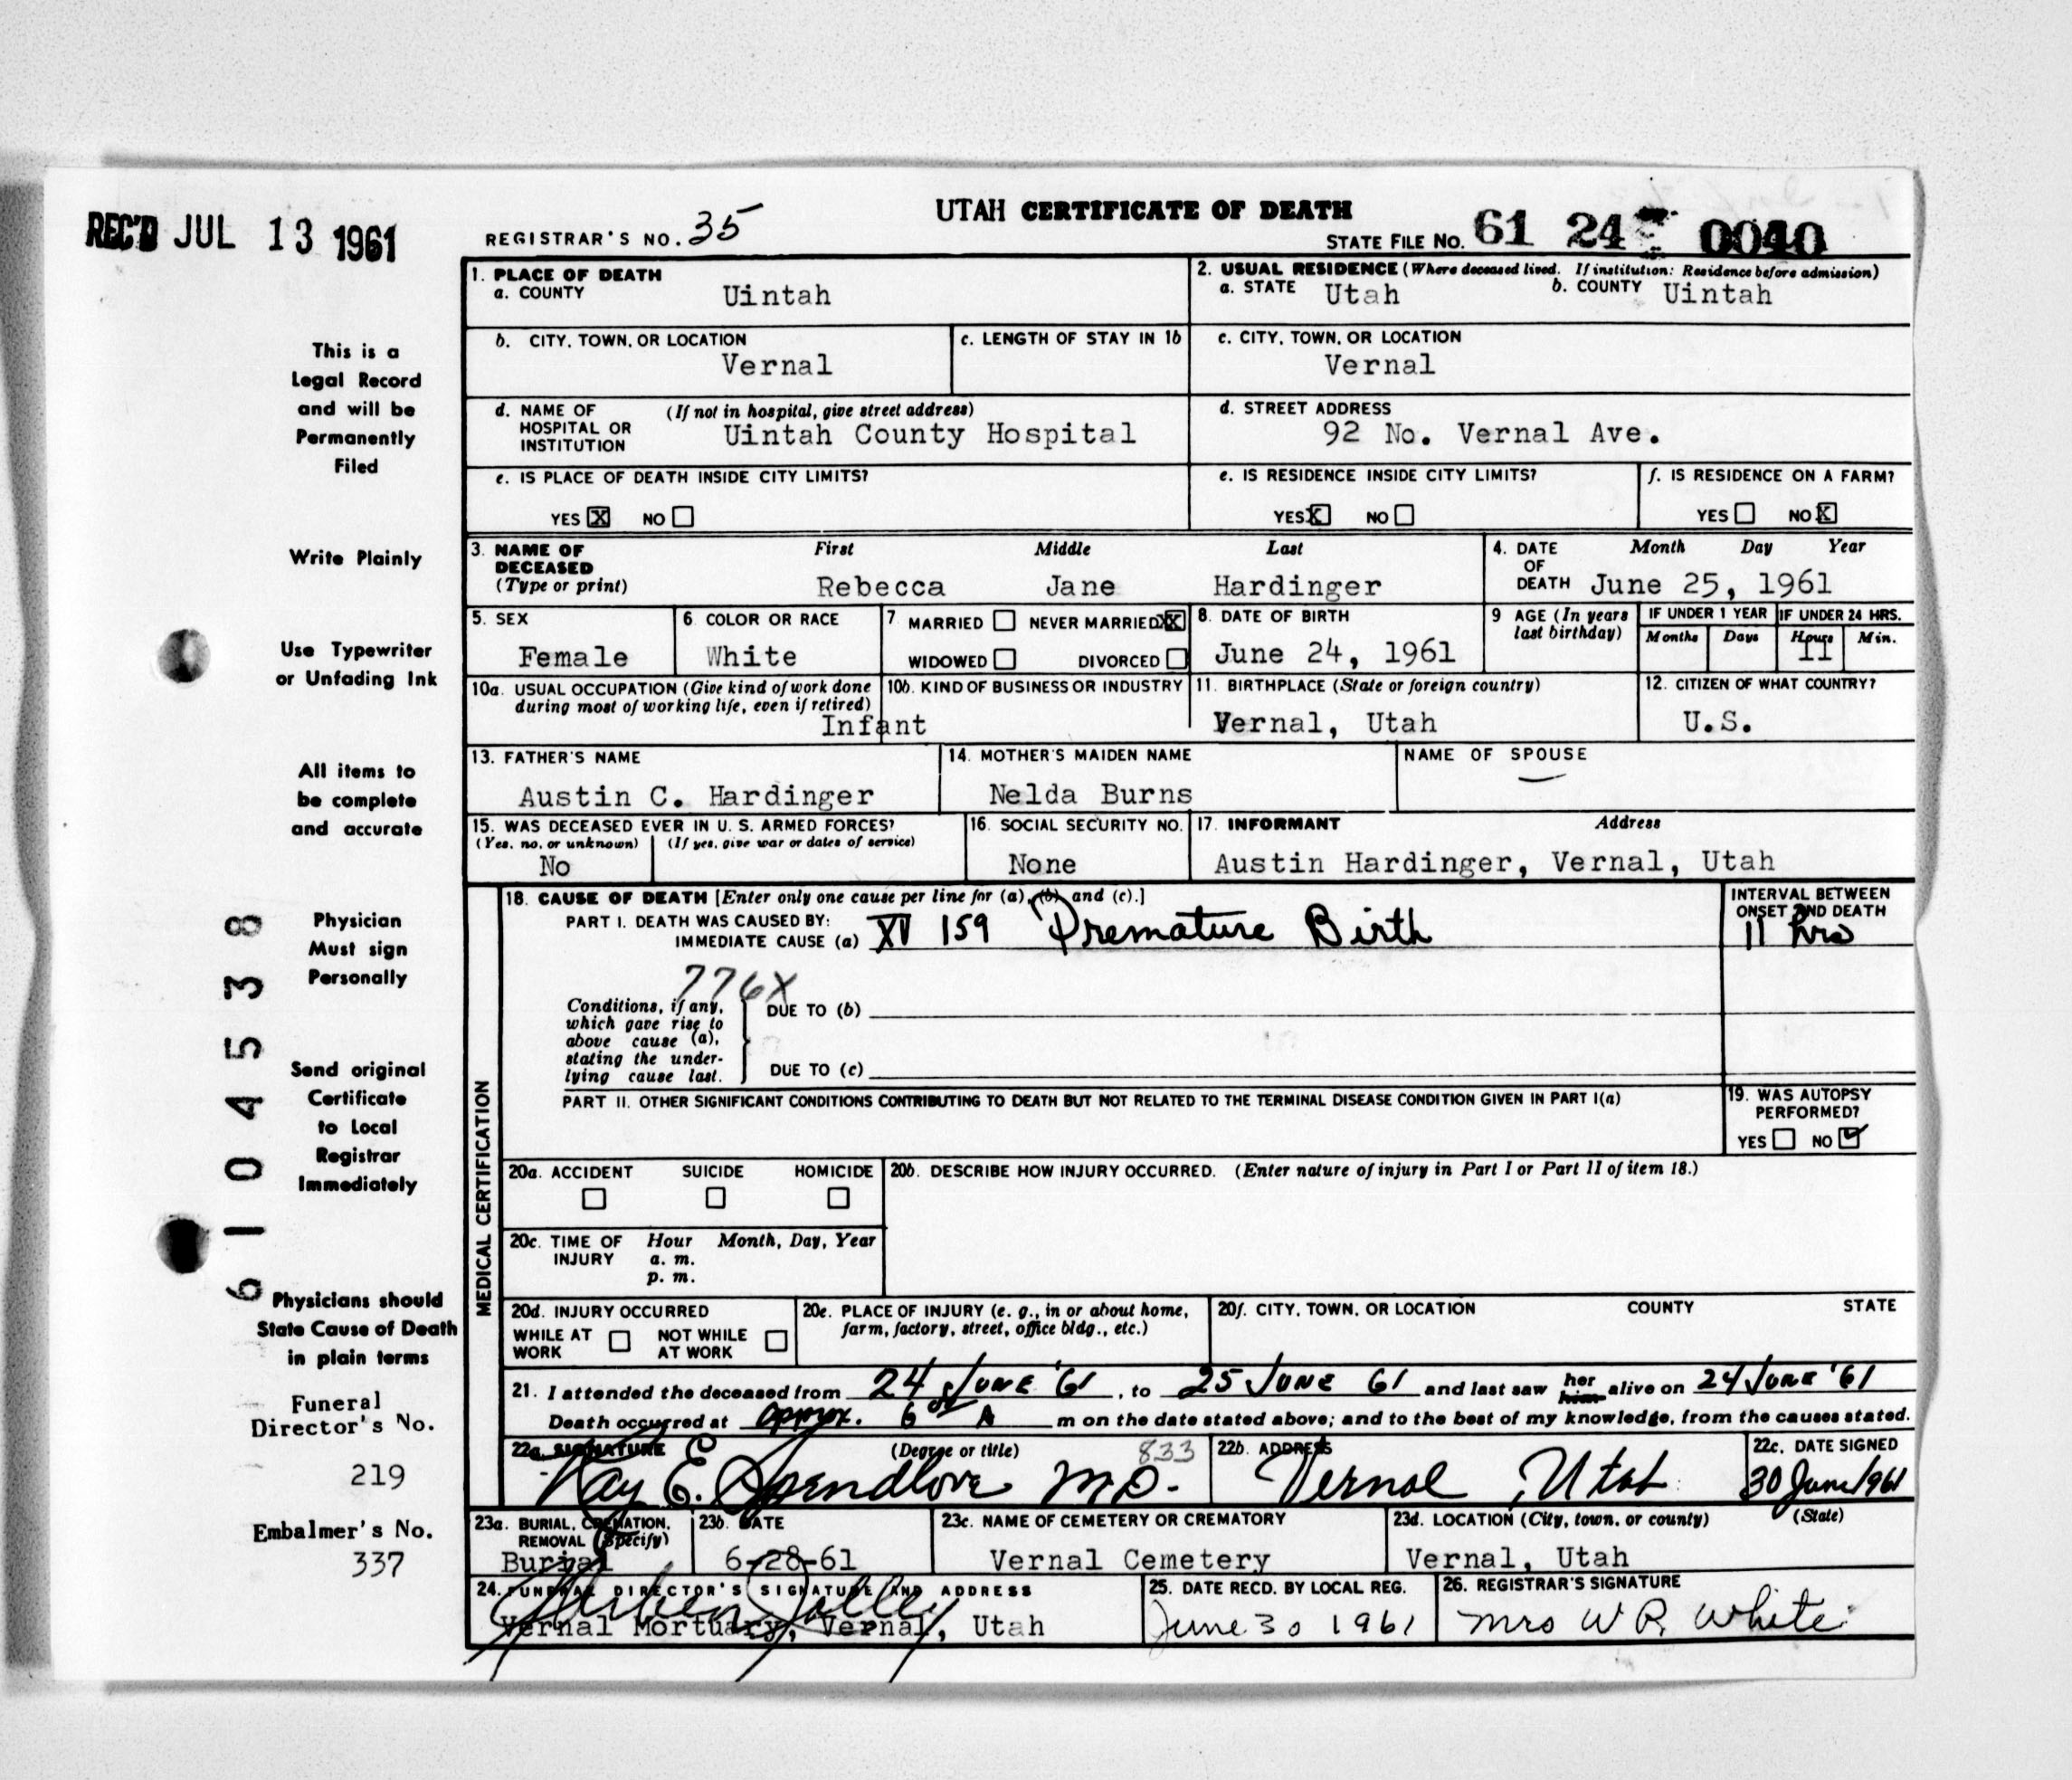 REC'D JUL 13 1961
UTAH CERTIFICATE OF DEATH
REGISTRAR'S NO. 35
STATE FILE NO. 61 24 0040
1. PLACE OF DEATH
a. COUNTY Uintah
2. USUAL RESIDENCE (Where deceased lived. If institution: Residence before admission)
a. STATE Utah b. COUNTY Uintah
b. CITY, TOWN, OR LOCATION
Vernal
c. LENGTH OF STAY IN 1b
c. CITY, TOWN, OR LOCATION
Vernal
d. NAME OF HOSPITAL OR INSTITUTION (If not in hospital, give street address)
Uintah County Hospital
d. STREET ADDRESS
92 No. Vernal Ave.
e. IS PLACE OF DEATH INSIDE CITY LIMITS?
YES X NO
e. IS RESIDENCE INSIDE CITY LIMITS?
YES X NO
f. IS RESIDENCE ON A FARM?
YES NO X
3. NAME OF DECEASED (Type or print)
First Middle Last
Rebecca Jane Hardinger
4. DATE OF DEATH Month Day Year
June 25, 1961
5. SEX
Female
6. COLOR OR RACE
White
7 MARRIED NEVER MARRIED XX
WIDOWED DIVORCED
8. DATE OF BIRTH
June 24, 1961
9 AGE (In years last birthday)
IF UNDER 1 YEAR IF UNDER 24 HRS.
Months Days Hours Min.
11
10a. USUAL OCCUPATION (Give kind of work done during most of working life, even if retired)
Infant
10b. KIND OF BUSINESS OR INDUSTRY
11. BIRTHPLACE (State or foreign country)
Vernal, Utah
12. CITIZEN OF WHAT COUNTRY?
U.S.
13. FATHER'S NAME
Austin C. Hardinger
14. MOTHER'S MAIDEN NAME
Nelda Burns
NAME OF SPOUSE
15. WAS DECEASED EVER IN U. S. ARMED FORCES?
(Yes, no, or unknown) (If yes, give war or dates of service)
No
16. SOCIAL SECURITY NO.
None
17. INFORMANT Address
Austin Hardinger, Vernal, Utah
MEDICAL CERTIFICATION
18. CAUSE OF DEATH [Enter only one cause per line for (a), (b) and (c).]
PART I. DEATH WAS CAUSED BY:
IMMEDIATE CAUSE (a) XV 159 Premature Birth
INTERVAL BETWEEN ONSET AND DEATH
11 hrs
776X
Conditions, if any, which gave rise to above cause (a), stating the underlying cause last.
DUE TO (b)
DUE TO (c)
PART II. OTHER SIGNIFICANT CONDITIONS CONTRIBUTING TO DEATH BUT NOT RELATED TO THE TERMINAL DISEASE CONDITION GIVEN IN PART I(a)
19. WAS AUTOPSY PERFORMED?
YES NO
20a. ACCIDENT SUICIDE HOMICIDE
20b. DESCRIBE HOW INJURY OCCURRED. (Enter nature of injury in Part I or Part II of item 18.)
20c. TIME OF INJURY Hour Month, Day, Year
a. m.
p. m.
20d. INJURY OCCURRED
WHILE AT WORK NOT WHILE AT WORK
20e. PLACE OF INJURY (e. g., in or about home, farm, factory, street, office bldg., etc.)
20f. CITY, TOWN, OR LOCATION COUNTY STATE
21. I attended the deceased from 24 June '61, to 25 June 61 and last saw her him alive on 24 June '61
Death occurred at approx. 6 A m on the date stated above; and to the best of my knowledge, from the causes stated.
22a. SIGNATURE (Degree or title) 833
Ray E. Spendlove M.D.
22b. ADDRESS
Vernal, Utah
22c. DATE SIGNED
30 June 1961
23a. BURIAL, CREMATION, REMOVAL (Specify)
Burial
23b. DATE
6-28-61
23c. NAME OF CEMETERY OR CREMATORY
Vernal Cemetery
23d. LOCATION (City, town, or county) (State)
Vernal, Utah
24. FUNERAL DIRECTOR'S SIGNATURE AND ADDRESS
Vernal Mortuary, Vernal, Utah
25. DATE RECD. BY LOCAL REG.
June 30 1961
26. REGISTRAR'S SIGNATURE
Mrs W R White
This is a
Legal Record
and will be
Permanently
Filed
Write Plainly
Use Typewriter
or Unfading Ink
All items to
be complete
and accurate
Physician
Must sign
Personally
Send original
Certificate
to Local
Registrar
Immediately
Physicians should
State Cause of Death
in plain terms
Funeral
Director's No.
219
Embalmer's No.
337
6104538